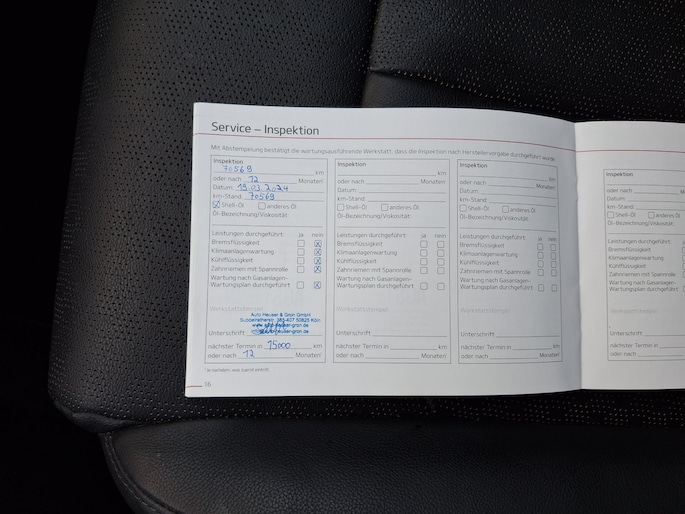 Service – Inspektion
Mit Abstempelung bestätigt die wartungsausführende Werkstatt, dass die Inspektion nach Herstellervorgabe durchgeführt wurde.
Inspektion
70569 km
oder nach 12 Monaten¹
Datum 19.03.2024
km-Stand 70569
Shell-Öl anderes Öl
Öl-Bezeichnung/Viskosität
Leistungen durchgeführt: ja nein
Bremsflüssigkeit
Klimaanlagenwartung
Kühlflüssigkeit
Zahnriemen mit Spannrolle
Wartung nach Gasanlagen-
Wartungsplan durchgeführt
Werkstattstempel
Auto Heuser & Gron GmbH
50825 Köln
Unterschrift
nächster Termin in 15000 km
oder nach 12 Monaten¹
Inspektion
km
oder nach Monaten¹
Datum
km-Stand
Shell-Öl anderes Öl
Öl-Bezeichnung/Viskosität
Leistungen durchgeführt: ja nein
Bremsflüssigkeit
Klimaanlagenwartung
Kühlflüssigkeit
Zahnriemen mit Spannrolle
Wartung nach Gasanlagen-
Wartungsplan durchgeführt
Werkstattstempel
Unterschrift
nächster Termin in km
oder nach Monaten¹
Inspektion
km
oder nach Monaten¹
Datum
km-Stand
Shell-Öl anderes Öl
Öl-Bezeichnung/Viskosität
Leistungen durchgeführt: ja nein
Bremsflüssigkeit
Klimaanlagenwartung
Kühlflüssigkeit
Zahnriemen mit Spannrolle
Wartung nach Gasanlagen-
Wartungsplan durchgeführt
Werkstattstempel
Unterschrift
nächster Termin in km
oder nach Monaten¹
¹je nachdem, was zuerst eintritt.
16
Inspektion
oder nach
Datum
km-Stand
Shell-Öl
Öl-Bezeichnung/Viskosität
Leistungen durchgeführt:
Bremsflüssigkeit
Klimaanlagenwartung
Kühlflüssigkeit
Zahnriemen mit Spannrolle
Wartung nach Gasanlagen-
Wartungsplan durchgeführt
Werkstattstempel
Unterschrift
nächster Termin in
oder nach